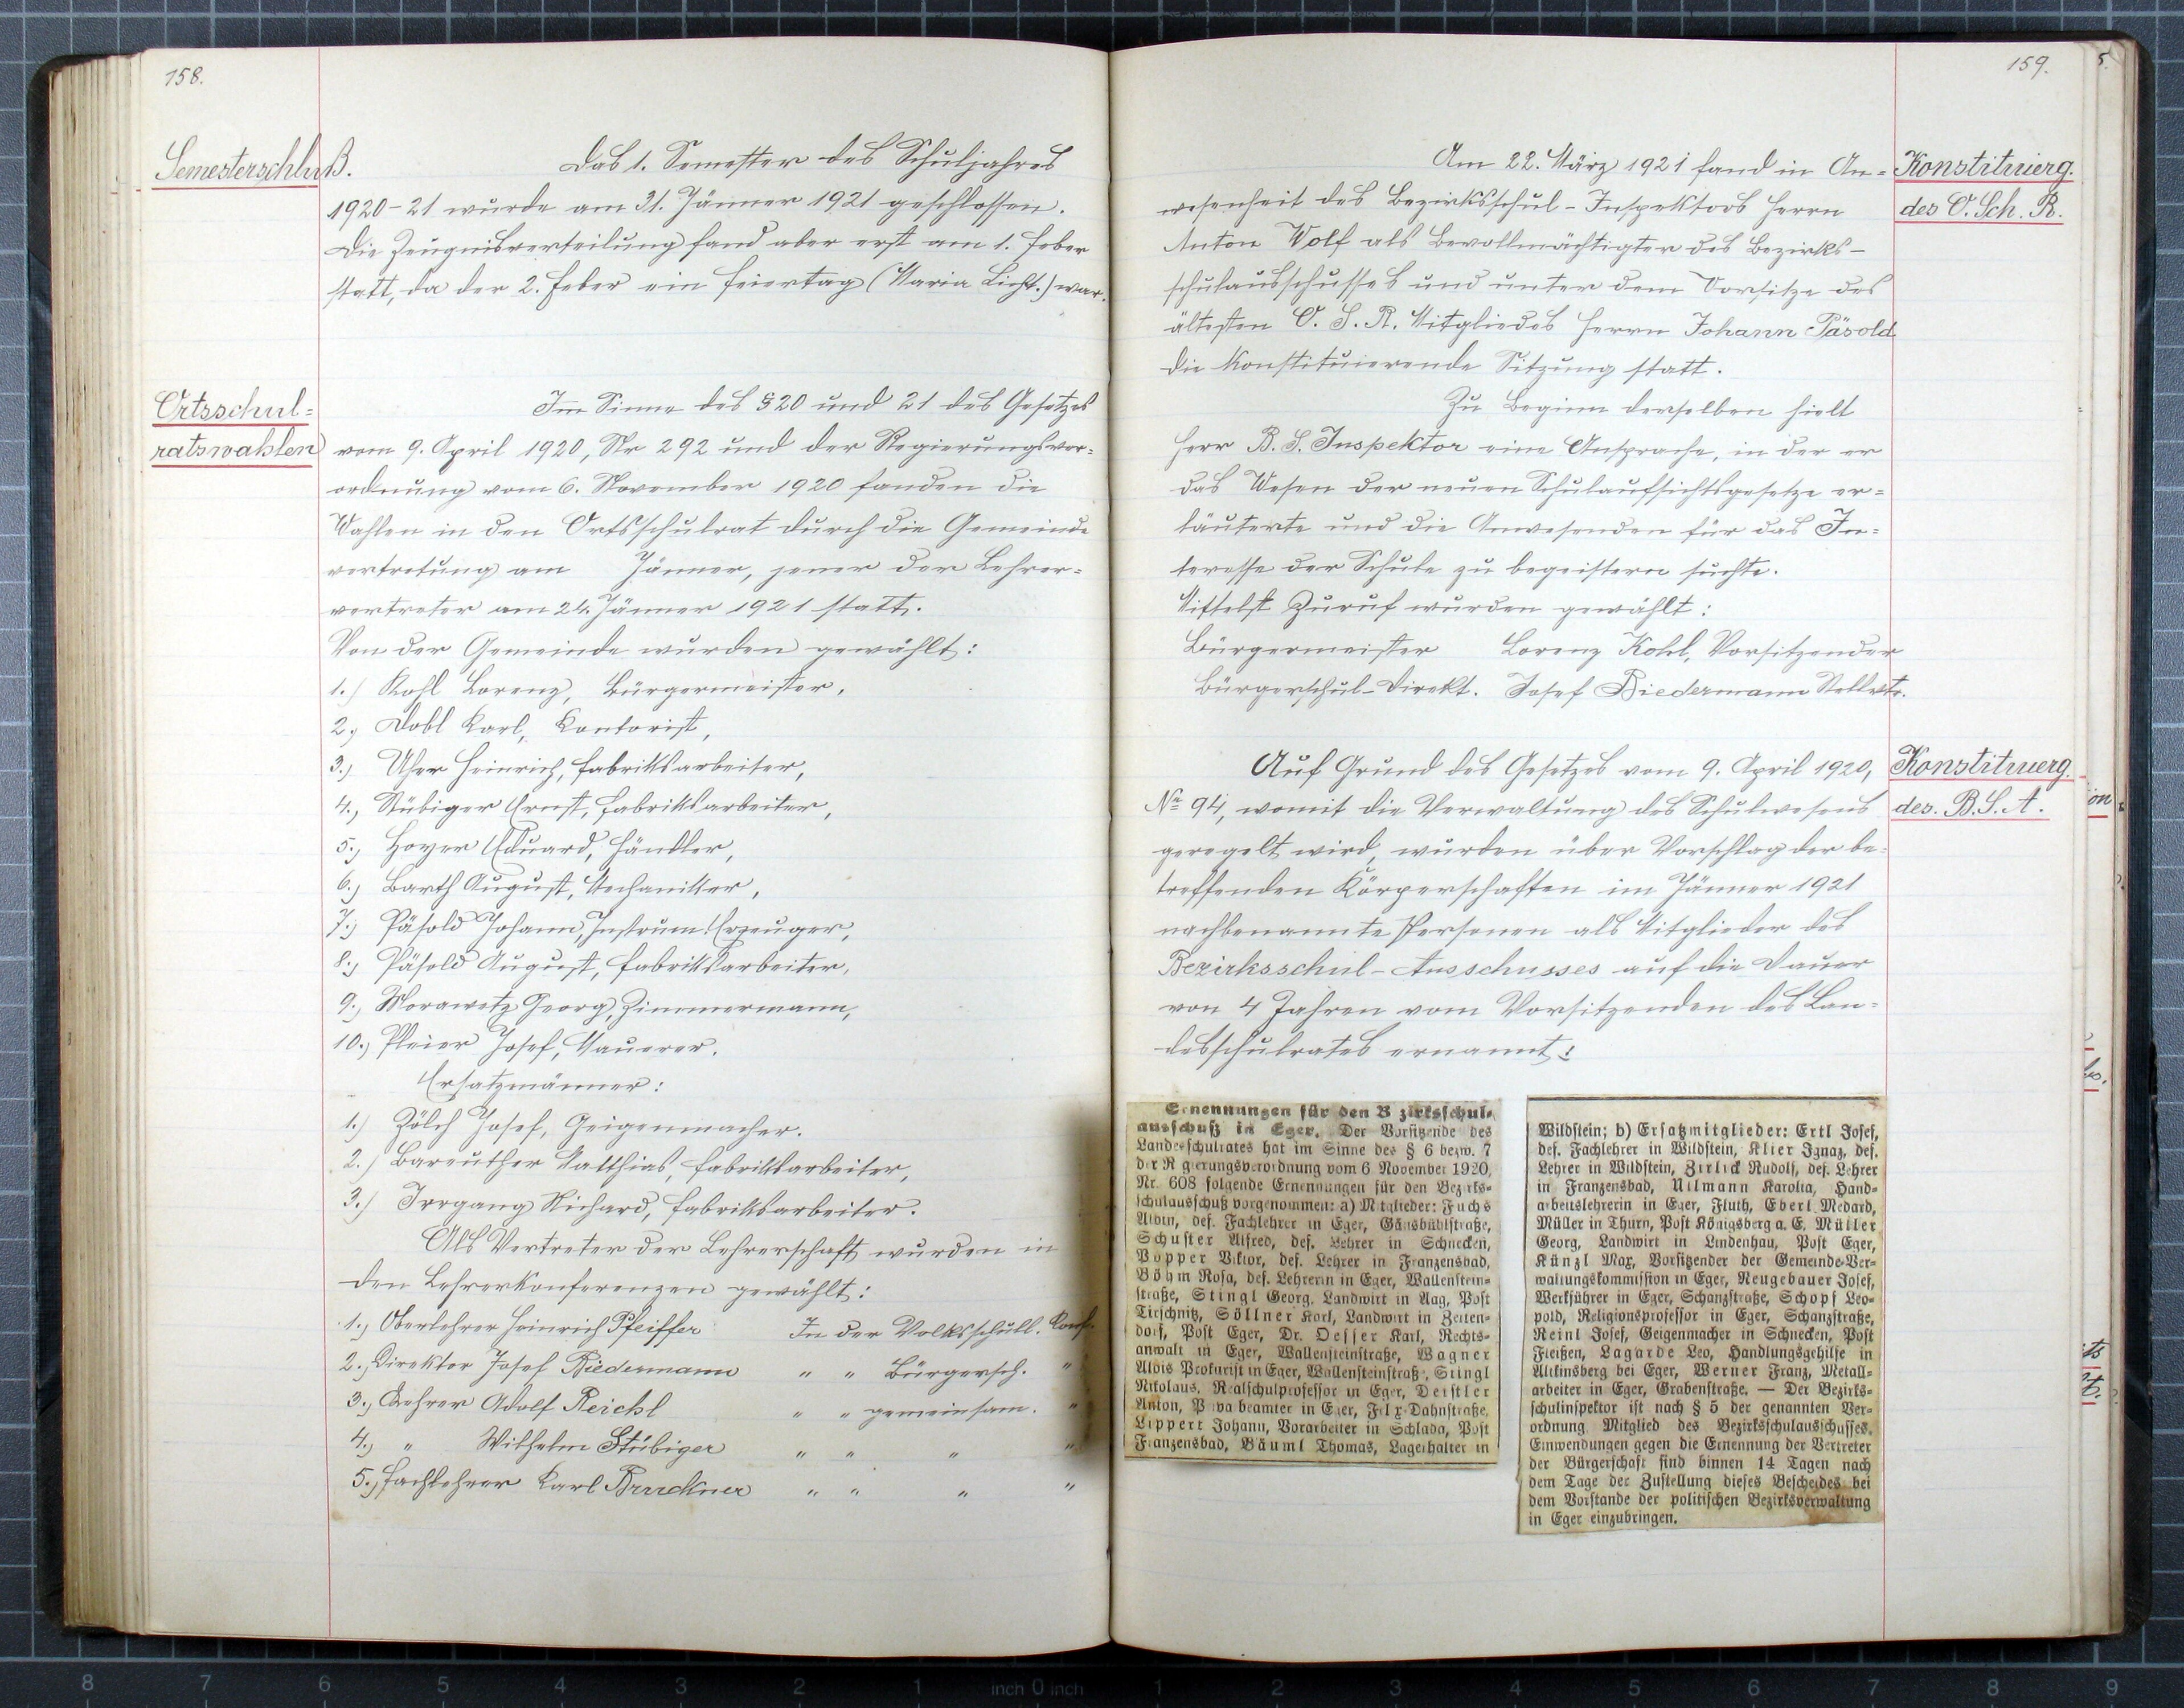 158.
Semesterschluß.
Das 1. Semester des Schuljahres
1920-21 wurde am 31. Jänner 1921 geschlossen.
Die Zeugnisverteilung fand aber erst am 1. Feber
statt, da der 2. Feber ein Feiertag (Maria Licht.) war.
Ortsschul=
ratswahlen
Im Sinne des § 20 und 21 des Gesetzes
vom 9. April 1920, Nr 292 und der Regierungsver=
ordnung vom 6. November 1920 fanden die
Wahlen in den Ortsschulrat durch die Gemeinde
vertretung am Jänner, jener der Lehrer=
vertreter am 24. Jänner 1921 statt.
Von der Gemeinde wurden gewählt:
1.) Kohl Lorenz, Bürgermeister,
2.) Dobl Karl, Kontorist,
3.) Uher Heinrich, Fabriksarbeiter,
4.) Stübiger Ernst, Fabriksarbeiter,
5.) Hoyer Eduard, Händler,
6.) Barth August, Mechaniker,
7.) Päsold Johann, Instrum. Erzeuger,
8.) Päsold August, Fabriksarbeiter,
9.) Morawetz Georg, Zimmermann,
10.) Pleier Josef, Maurer.
Ersatzmänner:
1.) Zölch Josef, Geigenmacher.
2.) Bareuther Matthias, Fabriksarbeiter,
3.) Irrgang Richard, Fabriksarbeiter.
Als Vertreter der Lehrerschaft wurden in
den Lehrerkonferenzen gewählt:
1.) Oberlehrer Heinrich Pfeiffer In der Volksschull. Konf.
2.) Direktor Josef Biedermann " " Bürgersch. "
3.) Lehrer Adolf Reichl " " gemeinsam. "
4.) " Wilhelm Stübiger " " " "
5.) Fachlehrer Karl Bruckner " " " "
159.
Konstituierg.
des O. Sch. R.
Am 22. März 1921 fand in An=
wesenheit des Bezirksschul-Inspektors Herrn
Anton Wolf als Bevollmächtigter des Bezirks-
schulausschusses und unter dem Vorsitze des
ältesten O. S. R. Mitgliedes Herrn Johann Päsold
die Konstituierende Sitzung statt.
Zu Beginn derselben hielt
Herr B. S. Inspektor eine Ansprache, in der er
das Wesen der neuen Schulaufsichtsgesetze er=
läuterte und die Anwesenden für das In=
teresse der Schule zu begeistern suchte.
Mittelst Zuruf wurden gewählt:
Bürgermeister Lorenz Kohl, Vorsitzender
Bürgerschul-Direkt. Josef Biedermann Stellvtr.
Konstituierg.
des. B. S. A.
Auf Grund des Gesetzes vom 9. April 1920,
No 94, womit die Verwaltung des Schulwesens
geregelt wird, wurden über Vorschlag der be=
treffenden Körperschaften im Jänner 1921
nachbenannte Personen als Mitglieder des
Bezirksschul-Ausschusses auf die Dauer
von 4 Jahren vom Vorsitzenden des Lan=
desschulrates ernannt:
Ernennungen für den Bezirksschul-
ausschuß in Eger. Der Vorsitzende des
Landesschulrates hat im Sinne des § 6 bezw. 7
der Regierungsverordnung vom 6 November 1920,
Nr. 608 folgende Ernennungen für den Bezirks-
schulausschuß vorgenommen: a) Mitglieder: Fuchs
Albin, def. Fachlehrer in Eger, Gänsbühlstraße,
Schuster Alfred, def. Lehrer in Schnecken,
Popper Viktor, def. Lehrer in Franzensbad,
Böhm Rosa, def. Lehrerin in Eger, Wallenstein-
straße, Stingl Georg, Landwirt in Aag, Post
Tirschnitz, Söllner Karl, Landwirt in Zeiten-
dorf, Post Eger, Dr. Oesser Karl, Rechts-
anwalt in Eger, Wallensteinstraße, Wagner
Alois Prokurist in Eger, Wallensteinstraße, Stingl
Nikolaus, Realschulprofessor in Eger, Deistler
Anton, Privatbeamter in Eger, Felix-Dahnstraße,
Lippert Johann, Vorarbeiter in Schlada, Post
Franzensbad, Bäuml Thomas, Lagerhalter in
Wildstein; b) Ersatzmitglieder: Ertl Josef,
def. Fachlehrer in Wildstein, Klier Ignaz, def.
Lehrer in Wildstein, Zirlick Rudolf, def. Lehrer
in Franzensbad, Ullmann Karolia, Hand-
arbeitslehrerin in Eger, Fluth, Eberl Medard,
Müller in Thurn, Post Königsberg a. E. Müller
Georg, Landwirt in Lindenhau, Post Eger,
Künzl Max, Vorsitzender der Gemeinde-Ver-
waltungskommission in Eger, Neugebauer Josef,
Werkführer in Eger, Schanzstraße, Schopf Leo-
pold, Religionsprofessor in Eger, Schanzstraße,
Reinl Josef, Geigenmacher in Schnecken, Post
Fleißen, Lagarde Leo, Handlungsgehilfe in
Altkinsberg bei Eger, Werner Franz, Metall-
arbeiter in Eger, Grabenstraße. — Der Bezirks-
schulinspektor ist nach § 5 der genannten Ver-
ordnung Mitglied des Bezirksschulausschusses.
Einwendungen gegen die Ernennung der Vertreter
der Bürgerschaft sind binnen 14 Tagen nach
dem Tage der Zustellung dieses Bescheides bei
dem Vorstande der politischen Bezirksverwaltung
in Eger einzubringen.
8 7 6 5 4 3 2 1 inch 0 inch 1 2 3 4 5 6 7 8 9